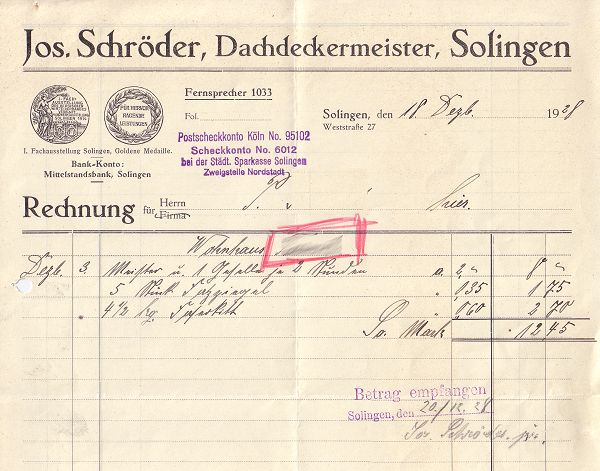 Jos. Schröder, Dachdeckermeister, Solingen
Fernsprecher 1033
Fol.
Solingen, den 18. Dezb. 1928
Weststraße 27
FÜR HERVOR
RAGENDE
LEISTUNGEN
I. Fachausstellung Solingen, Goldene Medaille.
Bank-Konto:
Mittelstandsbank, Solingen
Postscheckkonto Köln No. 95102
Scheckkonto No. 6012
bei der Städt. Sparkasse Solingen
Zweigstelle Nordstadt
Rechnung für Herrn
Firma
hier.
Wohnhaus
Dezb. 3. Meister u. 1 Geselle je 2 Stunden a. 2,„ 8 „
5 Stück Falzziegel „ 0,35 1 75
4 1/2 kg. „ 0,60 2 70
Sa. Mark 12 45
Betrag empfangen
Solingen, den 20./12. 28
Jos. Schröder jr.